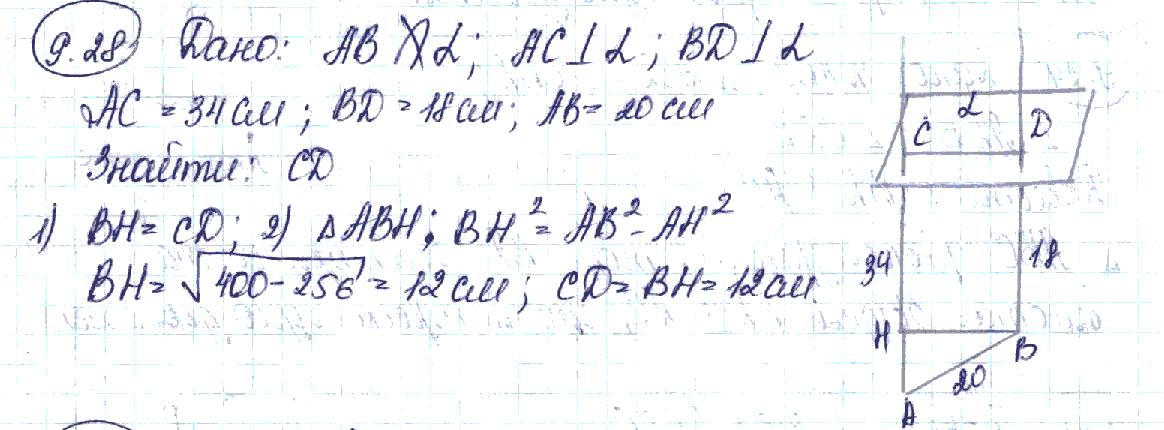 9.28 Дано: AB ∦ α; AC ⊥ α; BD ⊥ α
AC = 34 см; BD = 18 см; AB = 20 см
Знайти: CD
1) BH = CD; 2) △ABH; BH² = AB² - AH²
BH = √400 - 256 = 12 см; CD = BH = 12 см
α
C D
34 18
H B
20
A